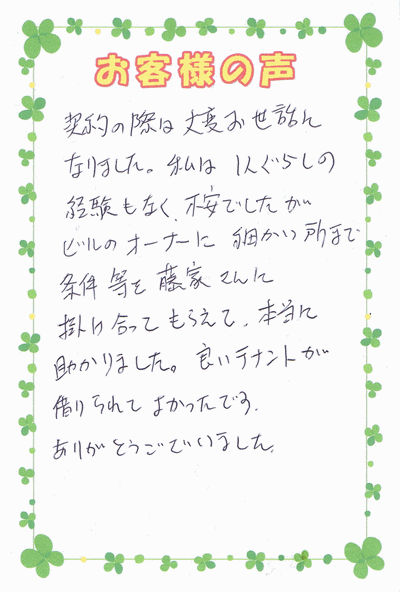 お客様の声
契約の際は大変お世話に
なりました。私は1人ぐらしの
経験もなく、不安でしたが
ビルのオーナーに細かい所まで
条件等を藤家さんに
掛け合ってもらえて、本当に
助かりました。良いテナントが
借りられてよかったです。
ありがとうございました。